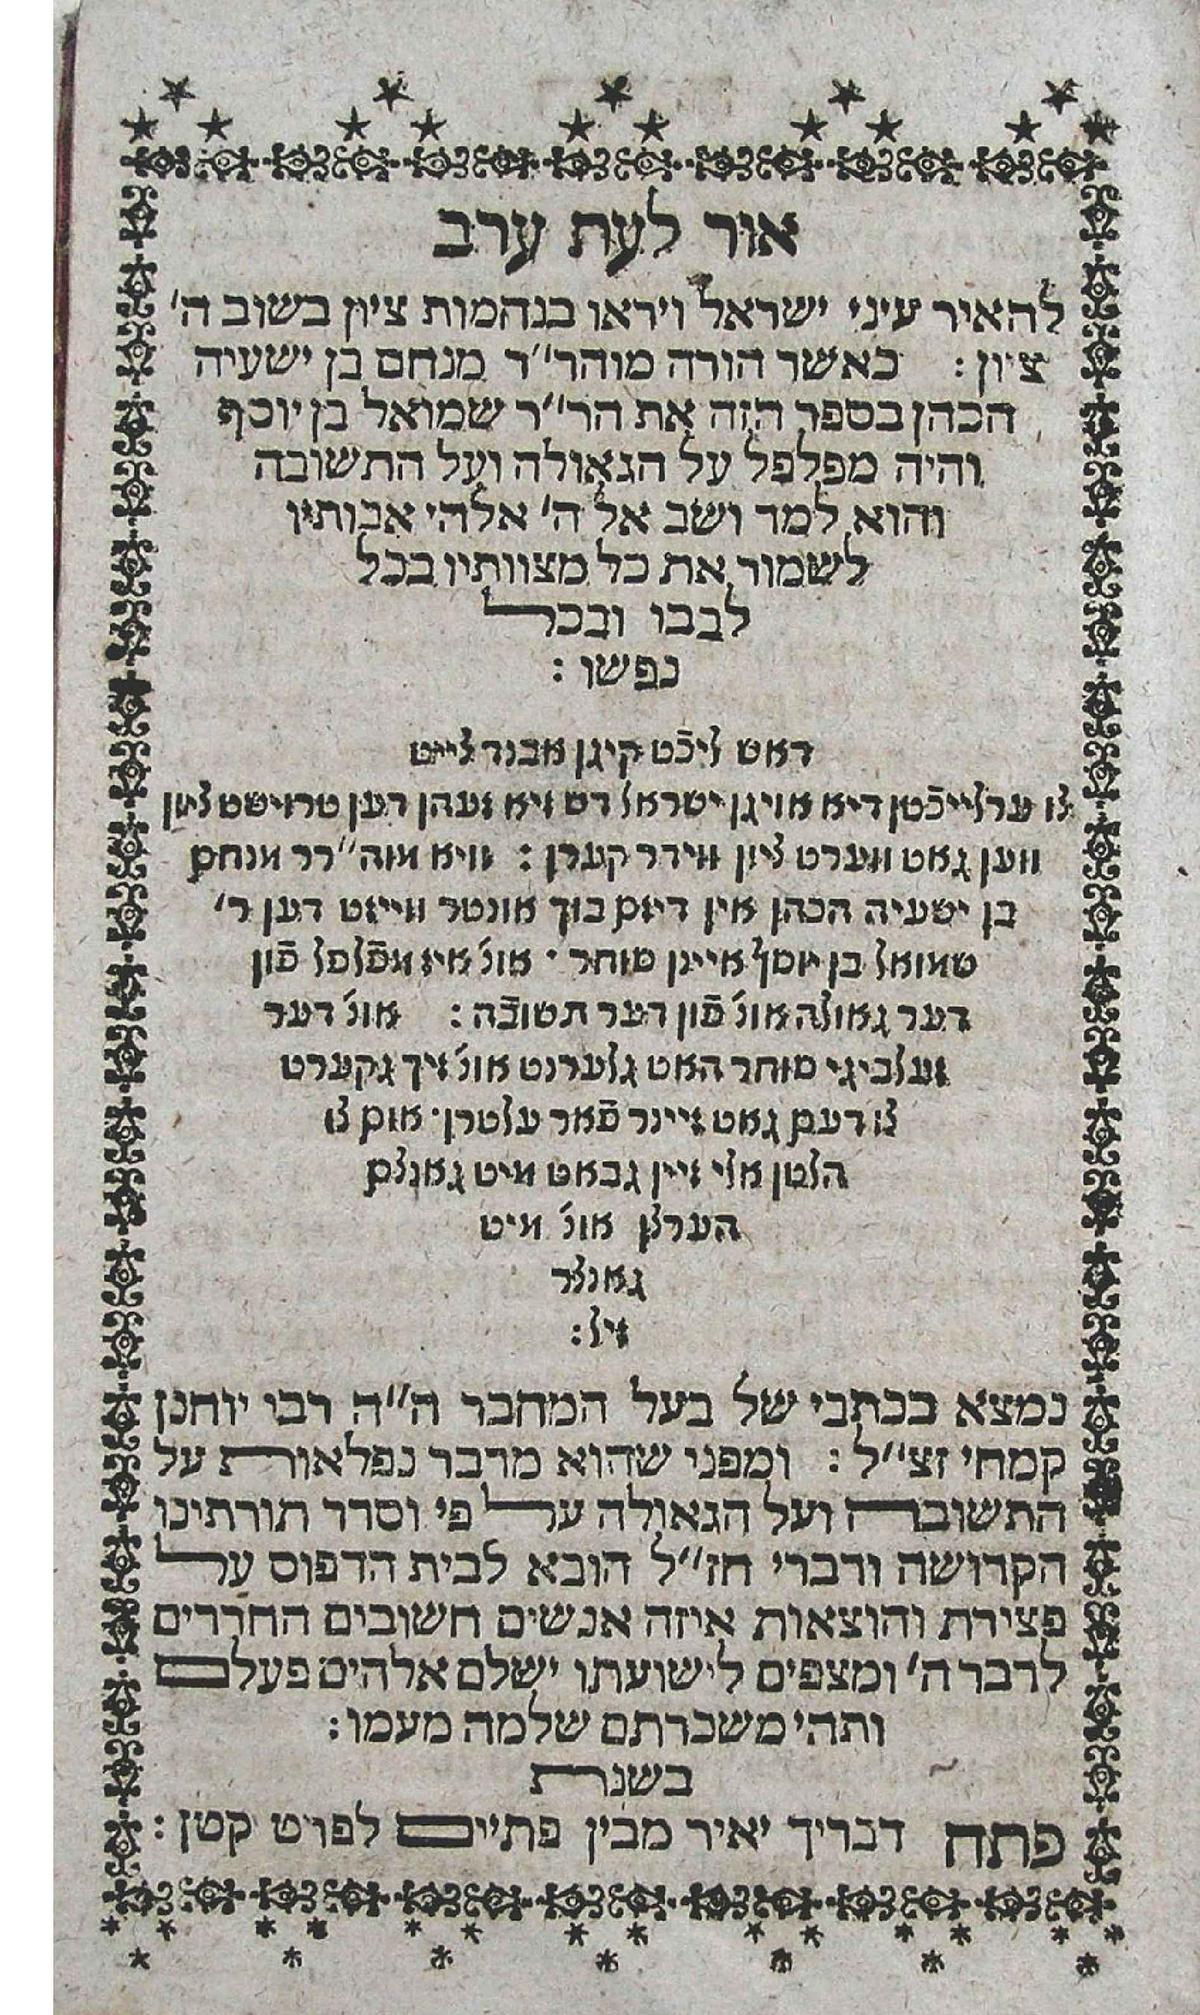 אור לעת ערב
להאיר עיני ישראל ויראו בנהמות ציון בשוב ה'
ציון : כאשר הורה מוהר"ד מנחם בן ישעיה
הכהן בספר הזה את הר"ר שמואל בן יוסף
והיה מפלפל על הגאולה ועל התשובה
והוא למד ושב אל ה' אלהי אבותיו
לשמור את כל מצוותיו בכל
לבבו ובכל
נפשו :
דאש ליכֿט קיגן אבנד צייט
צו ערלייכֿטן דיא אויגן ישראל דש זיא זעהן דען טרוישט ציון
ווען גאט ווערט ציון ווידר קערן : וויא מוה"רר מנחם
בן ישעיה הכהן אין דיזם בוך אונטר ווייזט דען ר'
שמואל בן יוסף איינן סוחר · אונ' איז מפֿלפל פֿון
דער גאולה אונ' פֿון דער תשובֿה : אונ' דער
זעלביגי סוחר האט גלערנט אונ' זיך גקערט
צו דעם גאט זיינר פֿאר עלטרן · אום צו
הלטן אלי זיין גבאט מיט גאנצם
הערצן אונ' מיט
גאנצר
זיל :
נמצא בכתבי של בעל המחבר ה"ה רבי יוחנן
קמחי זצ"ל : ומפני שהוא מדבר נפלאות על
התשובה ועל הגאולה על פי וסדר תורתינו
הקדושה ודברי חז"ל הובא לבית הדפוס על
פצירת והוצאות איזה אנשים חשובים החרדים
לדבר ה' ומצפים לישועתו ישלם אלהים פעלם
ותהי משכרתם שלמה מעמו :
בשנת
פתח דבריך יאיר מבין פתיים לפרט קטן :